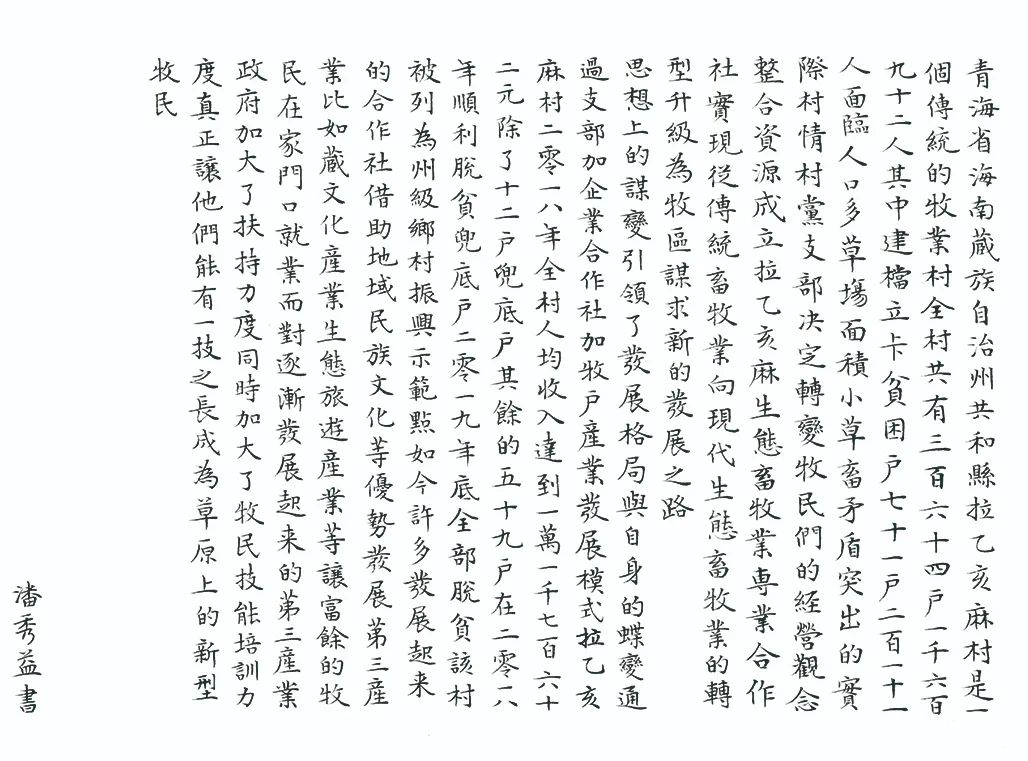 青海省海南蔵族自治州共和縣拉乙亥麻村是一
個傳統的牧業村全村共有三百六十四戸一千六百
九十二人其中建檔立卡貧困戸七十一戸二百一十一
人面臨人口多草塲面積小草畜矛盾突出的實
際村情村黨支部决定轉變牧民們的經營觀念
整合資源成立拉乙亥麻生態畜牧業専業合作
社實現從傳統畜牧業向現代生態畜牧業的轉
型升級為牧區謀求新的發展之路
思想上的謀變引領了發展格局與自身的蝶變通
過支部加企業合作社加牧戸產業發展模式拉乙亥
麻村二零一八年全村人均收入達到一萬一千七百六十
二元除了十二戸兜底戸其餘的五十九戸在二零一八
年順利脫貧兜底戸二零一九年底全部脫貧該村
被列為州級鄉村振興示範點如今許多發展起来
的合作社借助地域民族文化等優勢發展第三產
業比如蔵文化產業生態旅遊產業等讓富餘的牧
民在家門口就業而對逐漸發展起来的第三產業
政府加大了扶持力度同時加大了牧民技能培訓力
度真正讓他們能有一技之長成為草原上的新型
牧民
潘秀益書